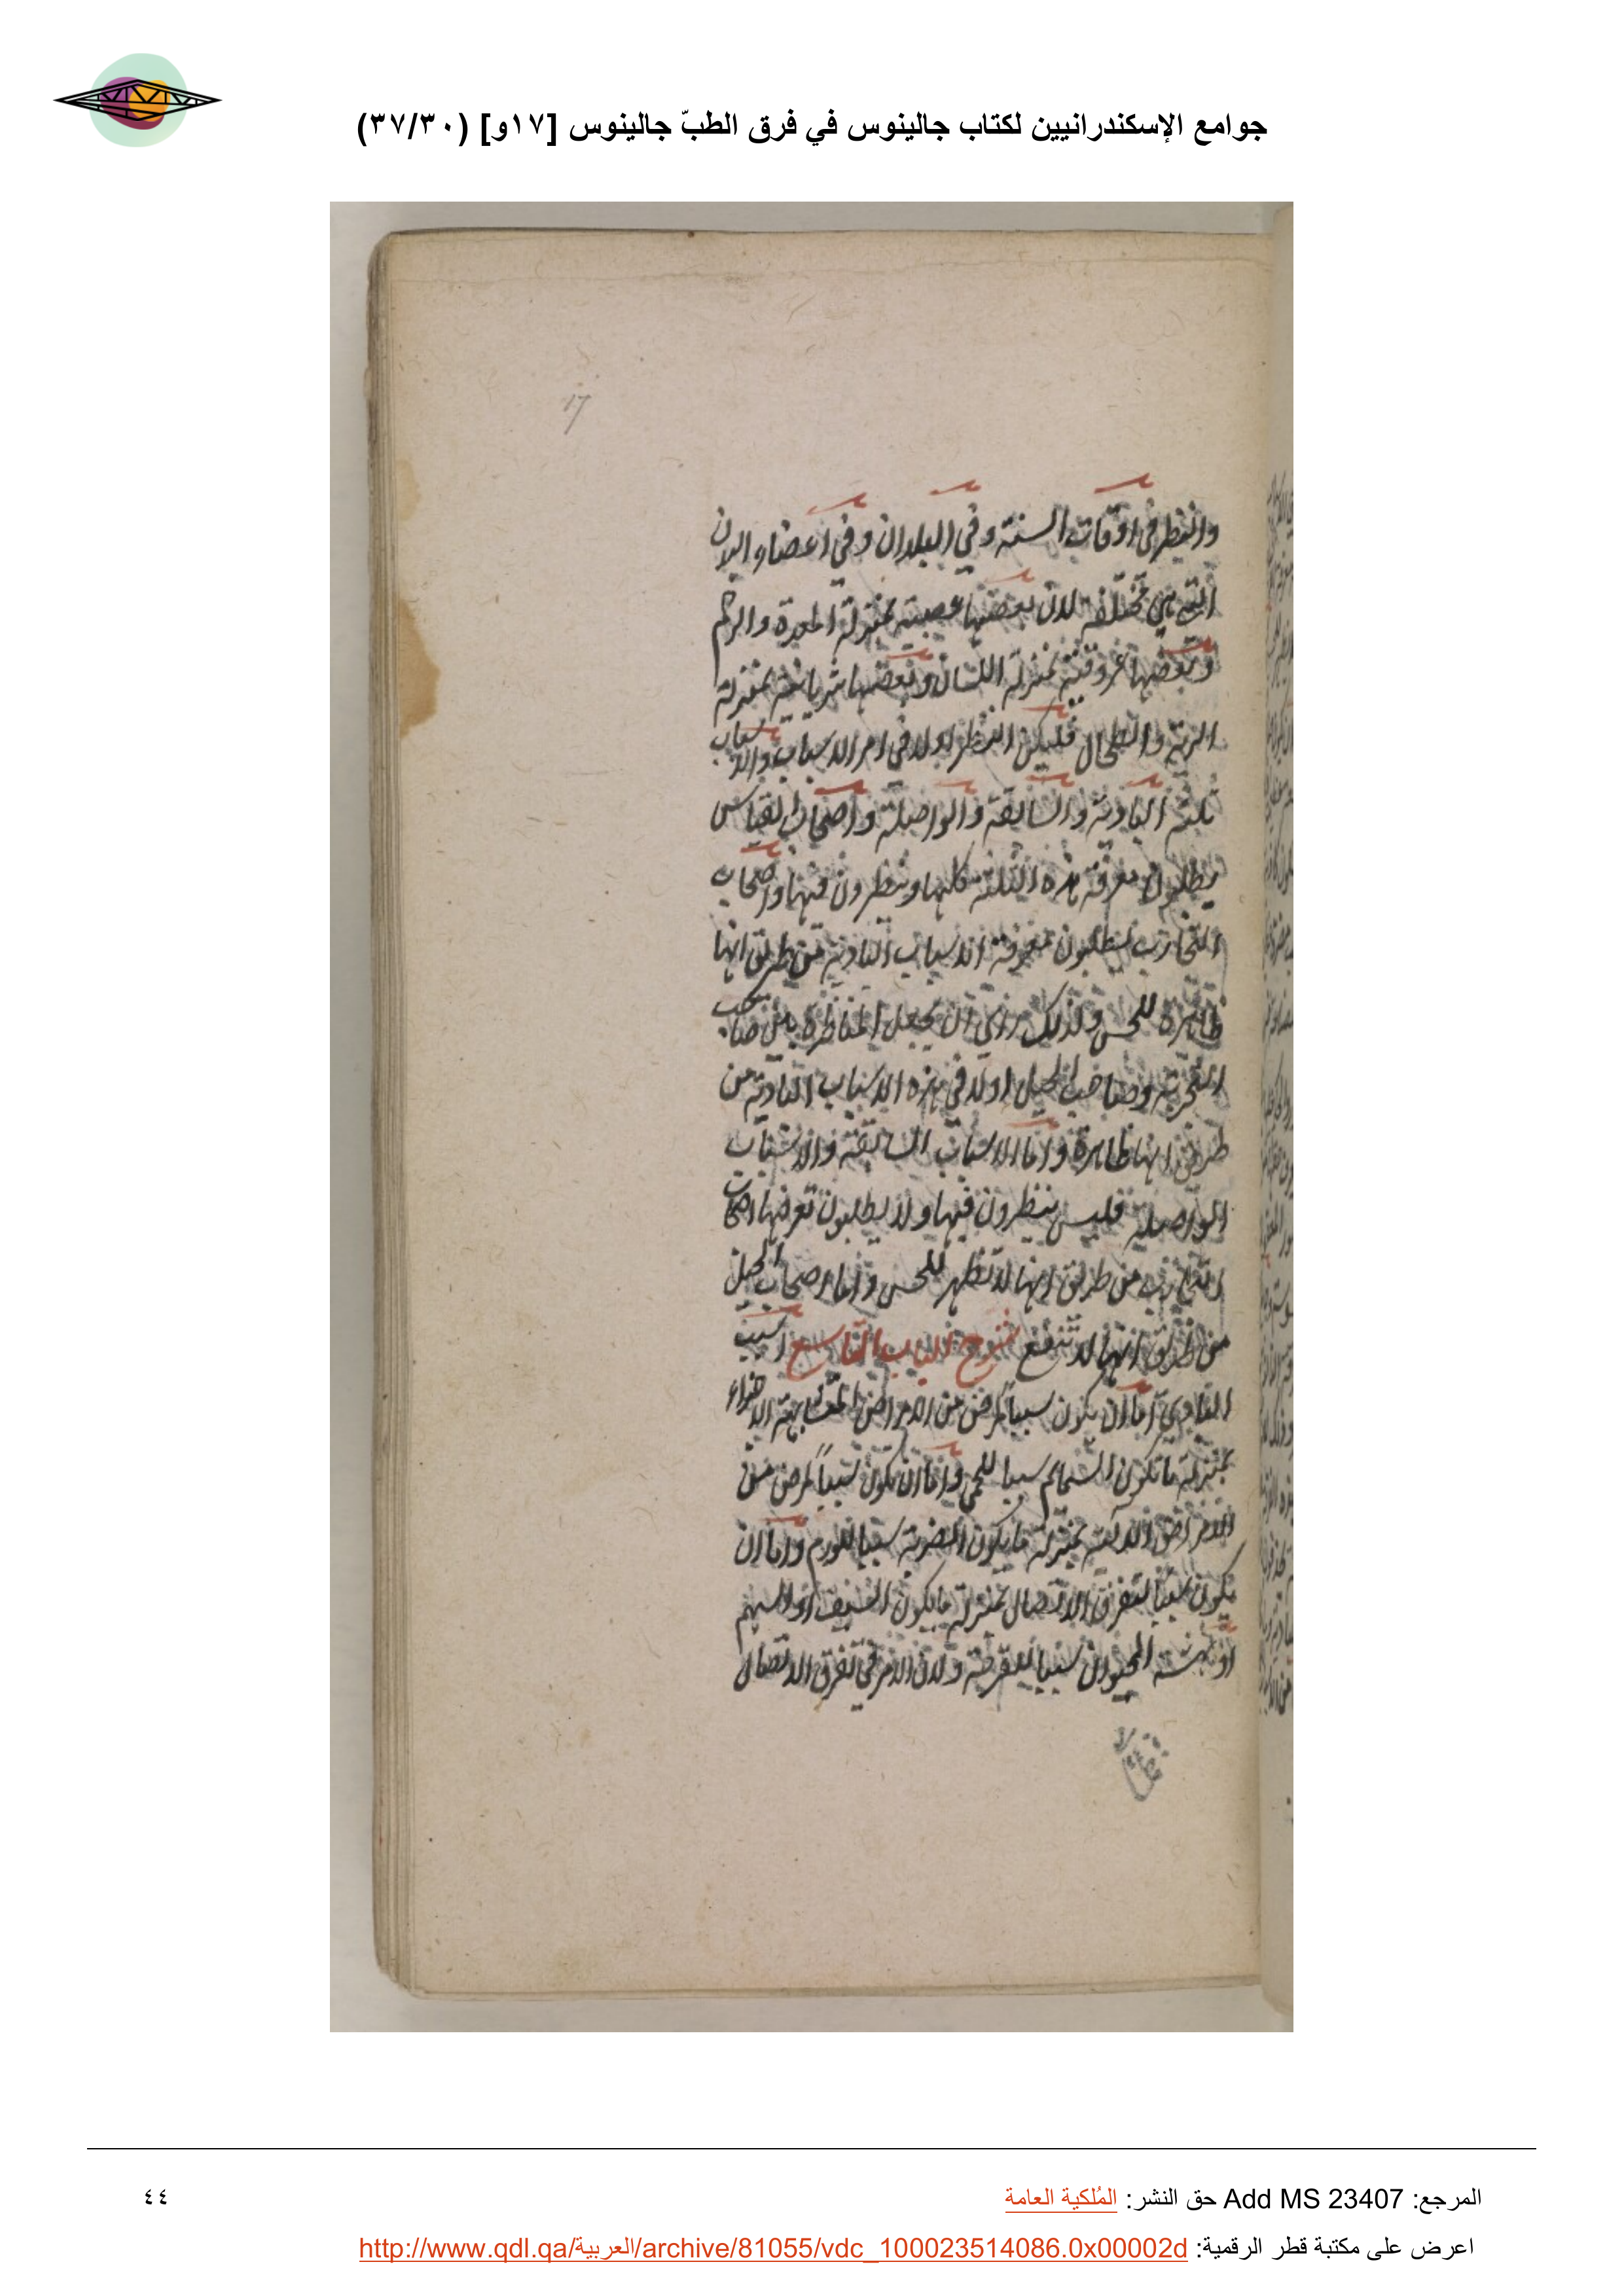 جوامع الإسكندرانيين لكتاب جالينوس في فرق الطبّ جالينوس [١٧و] (٣٧/٣٠)
17
والنظر في اوقات السنة وفي البلدان وفي اعضاء البدن
التي هي مختلفة لان بعضها عصبية بمنزلة المعدة والرحم
وبعضها عروقية بمنزلة اللسان وبعضها شريانية بمنزلة
الرية والطحال فليكن النظر اولا في امر الاسباب والاسباب
ثلثة البادية والسابقة والواصلة واصحاب القياس
يطلبون معرفة هذه الثلثة كلها وينظرون فيها واصحاب
التجارب يطلبون معرفة الاسباب البادية من طريق انها
ظاهرة للحس ولذلك راى ان يجعل المناظرة بين صاحب
التجربة وصاحب الحيل اولا في هذه الاسباب البادية من
طريق انها ظاهرة واما الاسباب السابقة والاسباب
الواصلة فليس ينظرون فيها ولا يطلبون تعرفها اصحاب
التجارب من طريق انها لا تظهر للحس واما اصحاب الحيل
من طريق انها لا تنفع شرح للباب التاسع السبب
البادي اما ان يكون سببا لمرض من الامراض المتشابهة الاجزاء
بمنزلة ما تكون السمائم سببا للحمى واما ان يكون سبباً لمرض من
الامراض الالية بمنزلة ما يكون الضربة سببا للورم واما ان
يكون سببا لتفرق الاتصال بمنزلة ما يكون السيف او السهم
او نهشة الحيوان سببا للقرحة ولان الامر في تفرق الاتصال
المرجع: Add MS 23407 حق النشر: المُلكية العامة
٤٤
اعرض على مكتبة قطر الرقمية: http://www.qdl.qa/العربية/archive/81055/vdc_100023514086.0x00002d